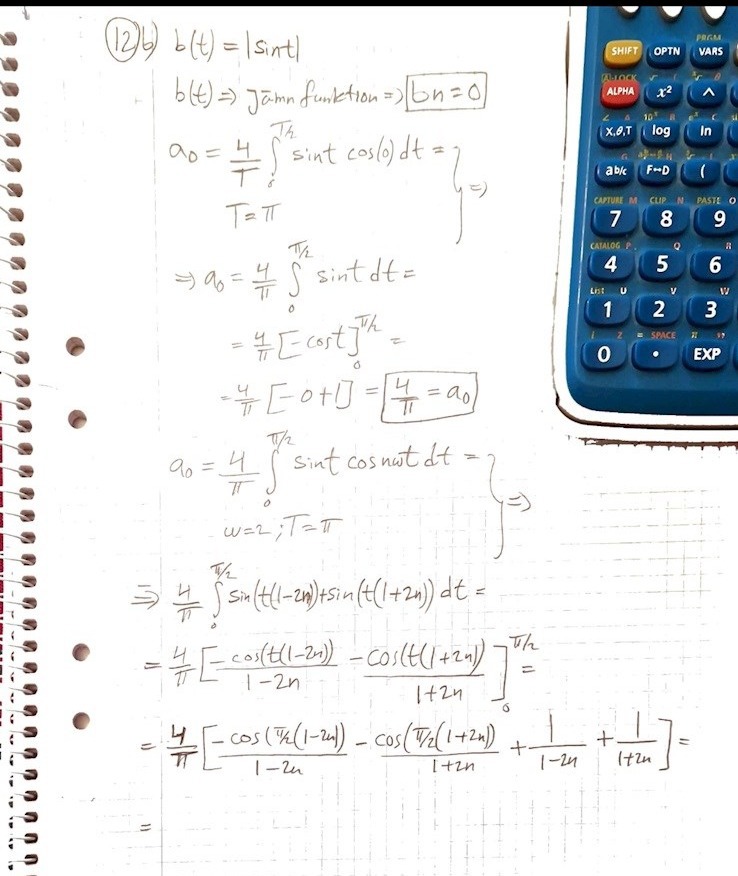 12b) b(t) = |sint|
b(t) => Jämn funktion => bn = 0
a0 = 4/T ∫_0^{T/2} sint cos(0) dt = } =>
T = π
=> a0 = 4/π ∫_0^{π/2} sint dt =
= 4/π [-cost]_0^{π/2} =
= 4/π [-0+1] = 4/π = a0
a0 = 4/π ∫_0^{π/2} sint cosnωt dt = } =>
ω=2 ; T=π
=> 4/π ∫_0^{π/2} sin(t(1-2n)) + sin(t(1+2n)) dt =
= 4/π [-cos(t(1-2n))/1-2n - cos(t(1+2n))/1+2n]_0^{π/2} =
= 4/π [-cos(π/2(1-2n))/1-2n - cos(π/2(1+2n))/1+2n + 1/1-2n + 1/1+2n] =
=
PRGM
SHIFT OPTN VARS
A-LOCK
ALPHA x² ^
X,θ,T log ln
ab/c F↔D (
CAPTURE M CLIP N PASTE O
7 8 9
CATALOG P Q R
4 5 6
List U V W
1 2 3
Z = SPACE
0 . EXP